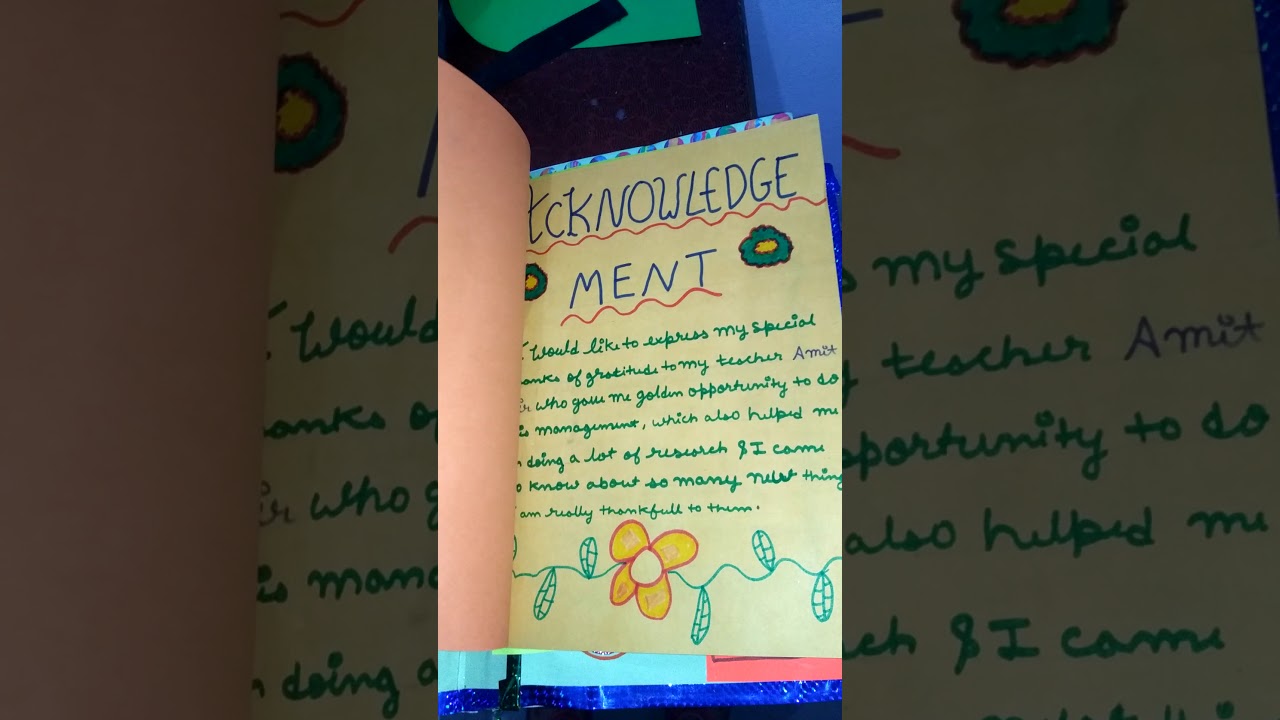 ACKNOWLEDGE
MENT
I Would like to express my special
anks of gratitude to my teacher Amit
ir who gave me golden opportunity to do
is management, which also helped me
n doing a lot of research & I came
o know about so many new thing
I am really thankfull to them.